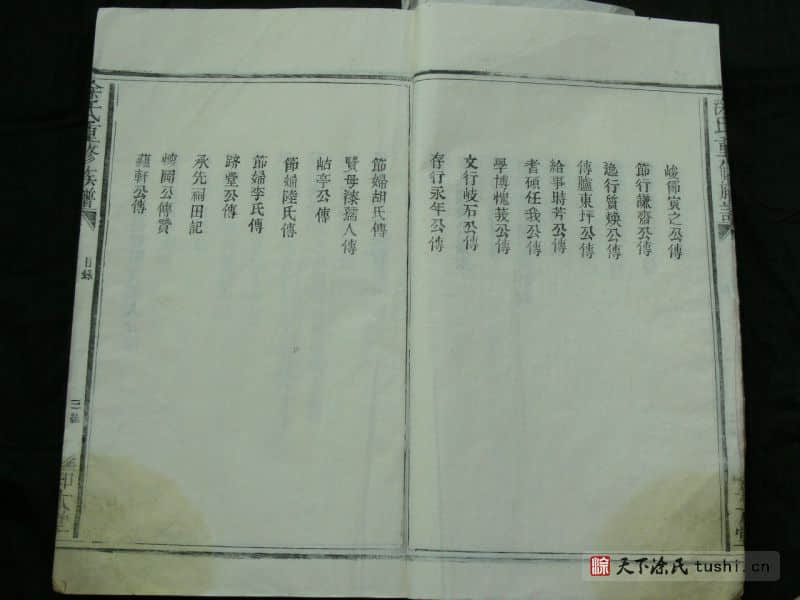 峻節寅之公傳
節行謙齋公傳
逸行質煥公傳
傳臚東坪公傳
給事時芳公傳
耆碩任我公傳
學博愧莪公傳
文行岐石公傳
存行永年公傳
節婦胡氏傳
賢母漆孺人傳
岵亭公傳
節婦陸氏傳
節婦李氏傳
路堂公傳
承先祠田記
公傳贊
蘊軒公傳
涂氏重修族譜
目錄
天下涂氏 tushi.cn